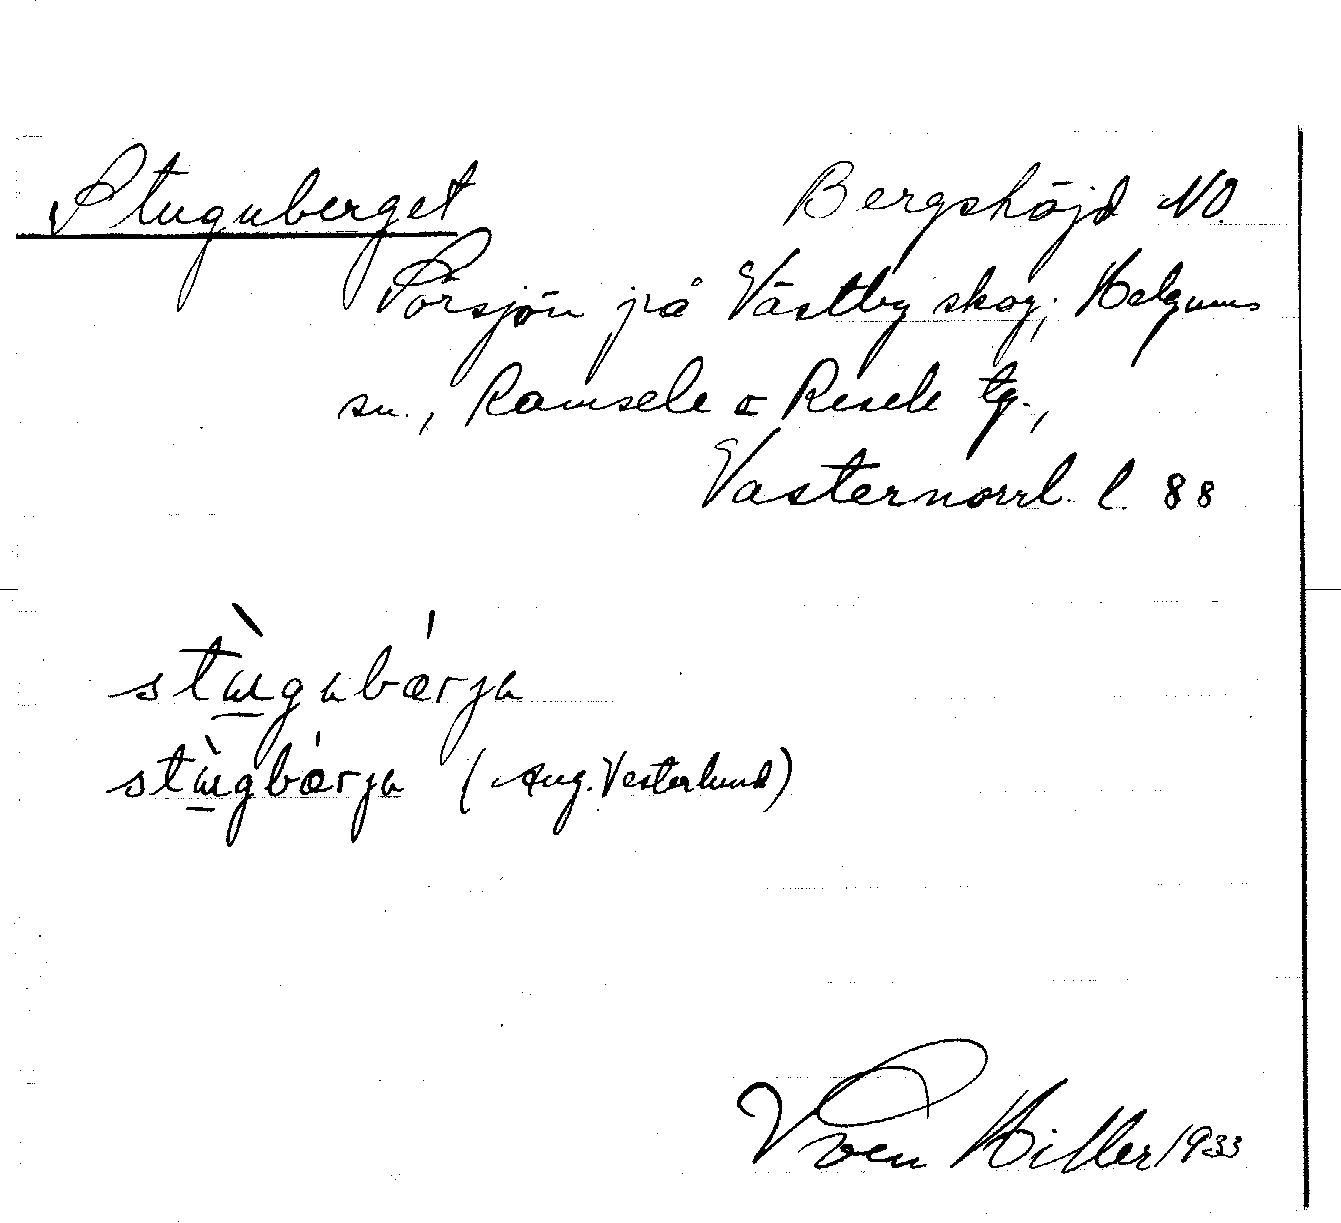 Stuguberget Bergshöjd NO.
Porsjön på Västby skog; Helgums
sn., Ramsele o Resele tg.,
Västernorrl. l. 88
stùgubárja
stùgbárja (Aug. Vesterlund)
Sven Hiller 1933